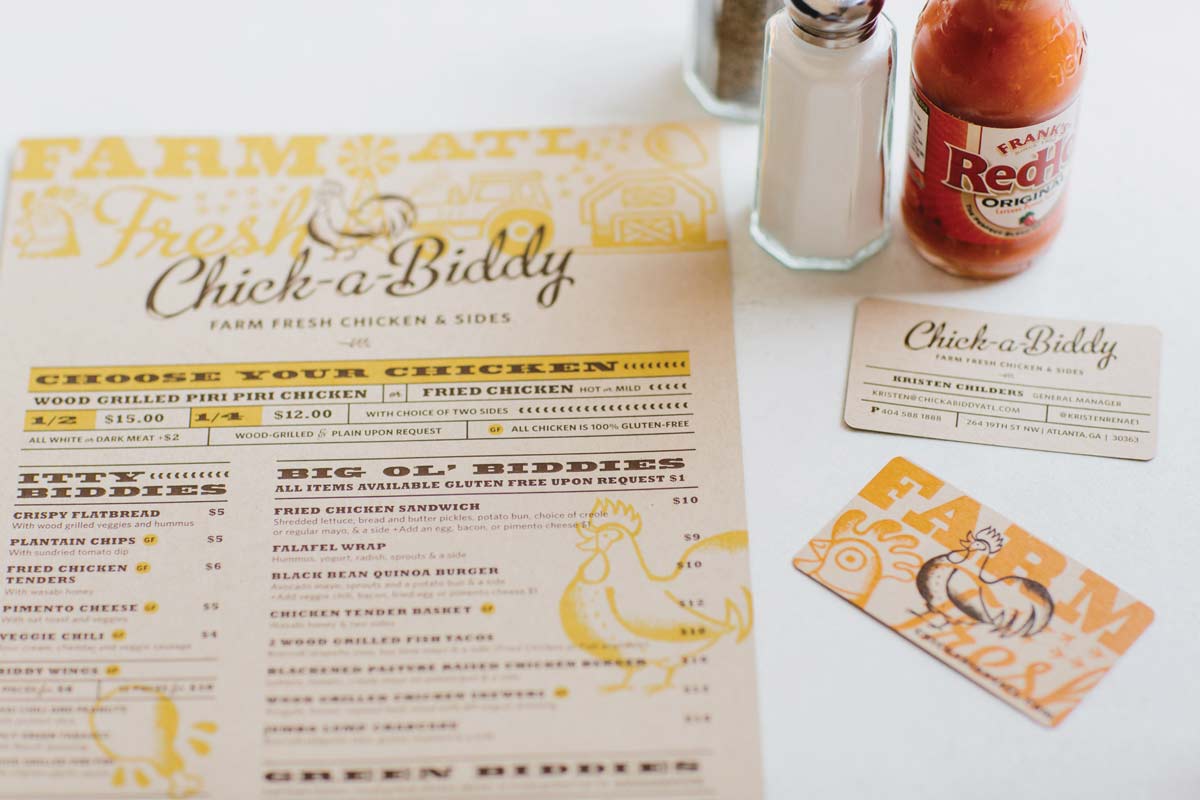 FARM ATL
Fresh
Chick-a-Biddy
FARM FRESH CHICKEN & SIDES
CHOOSE YOUR CHICKEN
WOOD GRILLED PIRI PIRI CHICKEN or FRIED CHICKEN HOT or MILD
1/2 $15.00 1/4 $12.00 WITH CHOICE OF TWO SIDES
ALL WHITE or DARK MEAT +$2 WOOD-GRILLED & PLAIN UPON REQUEST GF ALL CHICKEN IS 100% GLUTEN-FREE
ITTY
BIDDIES
CRISPY FLATBREAD $5
With wood grilled veggies and hummus
PLANTAIN CHIPS GF $5
With sundried tomato dip
FRIED CHICKEN GF $6
TENDERS
With wasabi honey
PIMENTO CHEESE GF $5
With oat toast and veggies
VEGGIE CHILI GF $4
Sour cream, cheddar and veggie sausage
BIDDY WINGS GF
BIG OL' BIDDIES
ALL ITEMS AVAILABLE GLUTEN FREE UPON REQUEST $1
FRIED CHICKEN SANDWICH $10
Shredded lettuce, bread and butter pickles, potato bun, choice of creole
or regular mayo, & a side +Add an egg, bacon, or pimento cheese $1
FALAFEL WRAP $9
Hummus, yogurt, radish, sprouts & a side
BLACK BEAN QUINOA BURGER $10
Avocado mayo, sprouts and a potato bun & a side
+Add veggie chili, bacon, fried egg or pimento cheese $1
CHICKEN TENDER BASKET GF $12
Wasabi honey & two sides
2 WOOD GRILLED FISH TACOS $10
BLACKENED PASTURE RAISED CHICKEN BURGER
WOOD GRILLED CHICKEN SKEWERS
GREEN BIDDIES
FRANK'S
RedHo
ORIGINA
Chick-a-Biddy
FARM FRESH CHICKEN & SIDES
KRISTEN CHILDERS GENERAL MANAGER
KRISTEN@CHICKABIDDYATL.COM @KRISTENRENAE1
P 404 588 1888 264 19TH ST NW | ATLANTA, GA | 30363
FARM
fresh